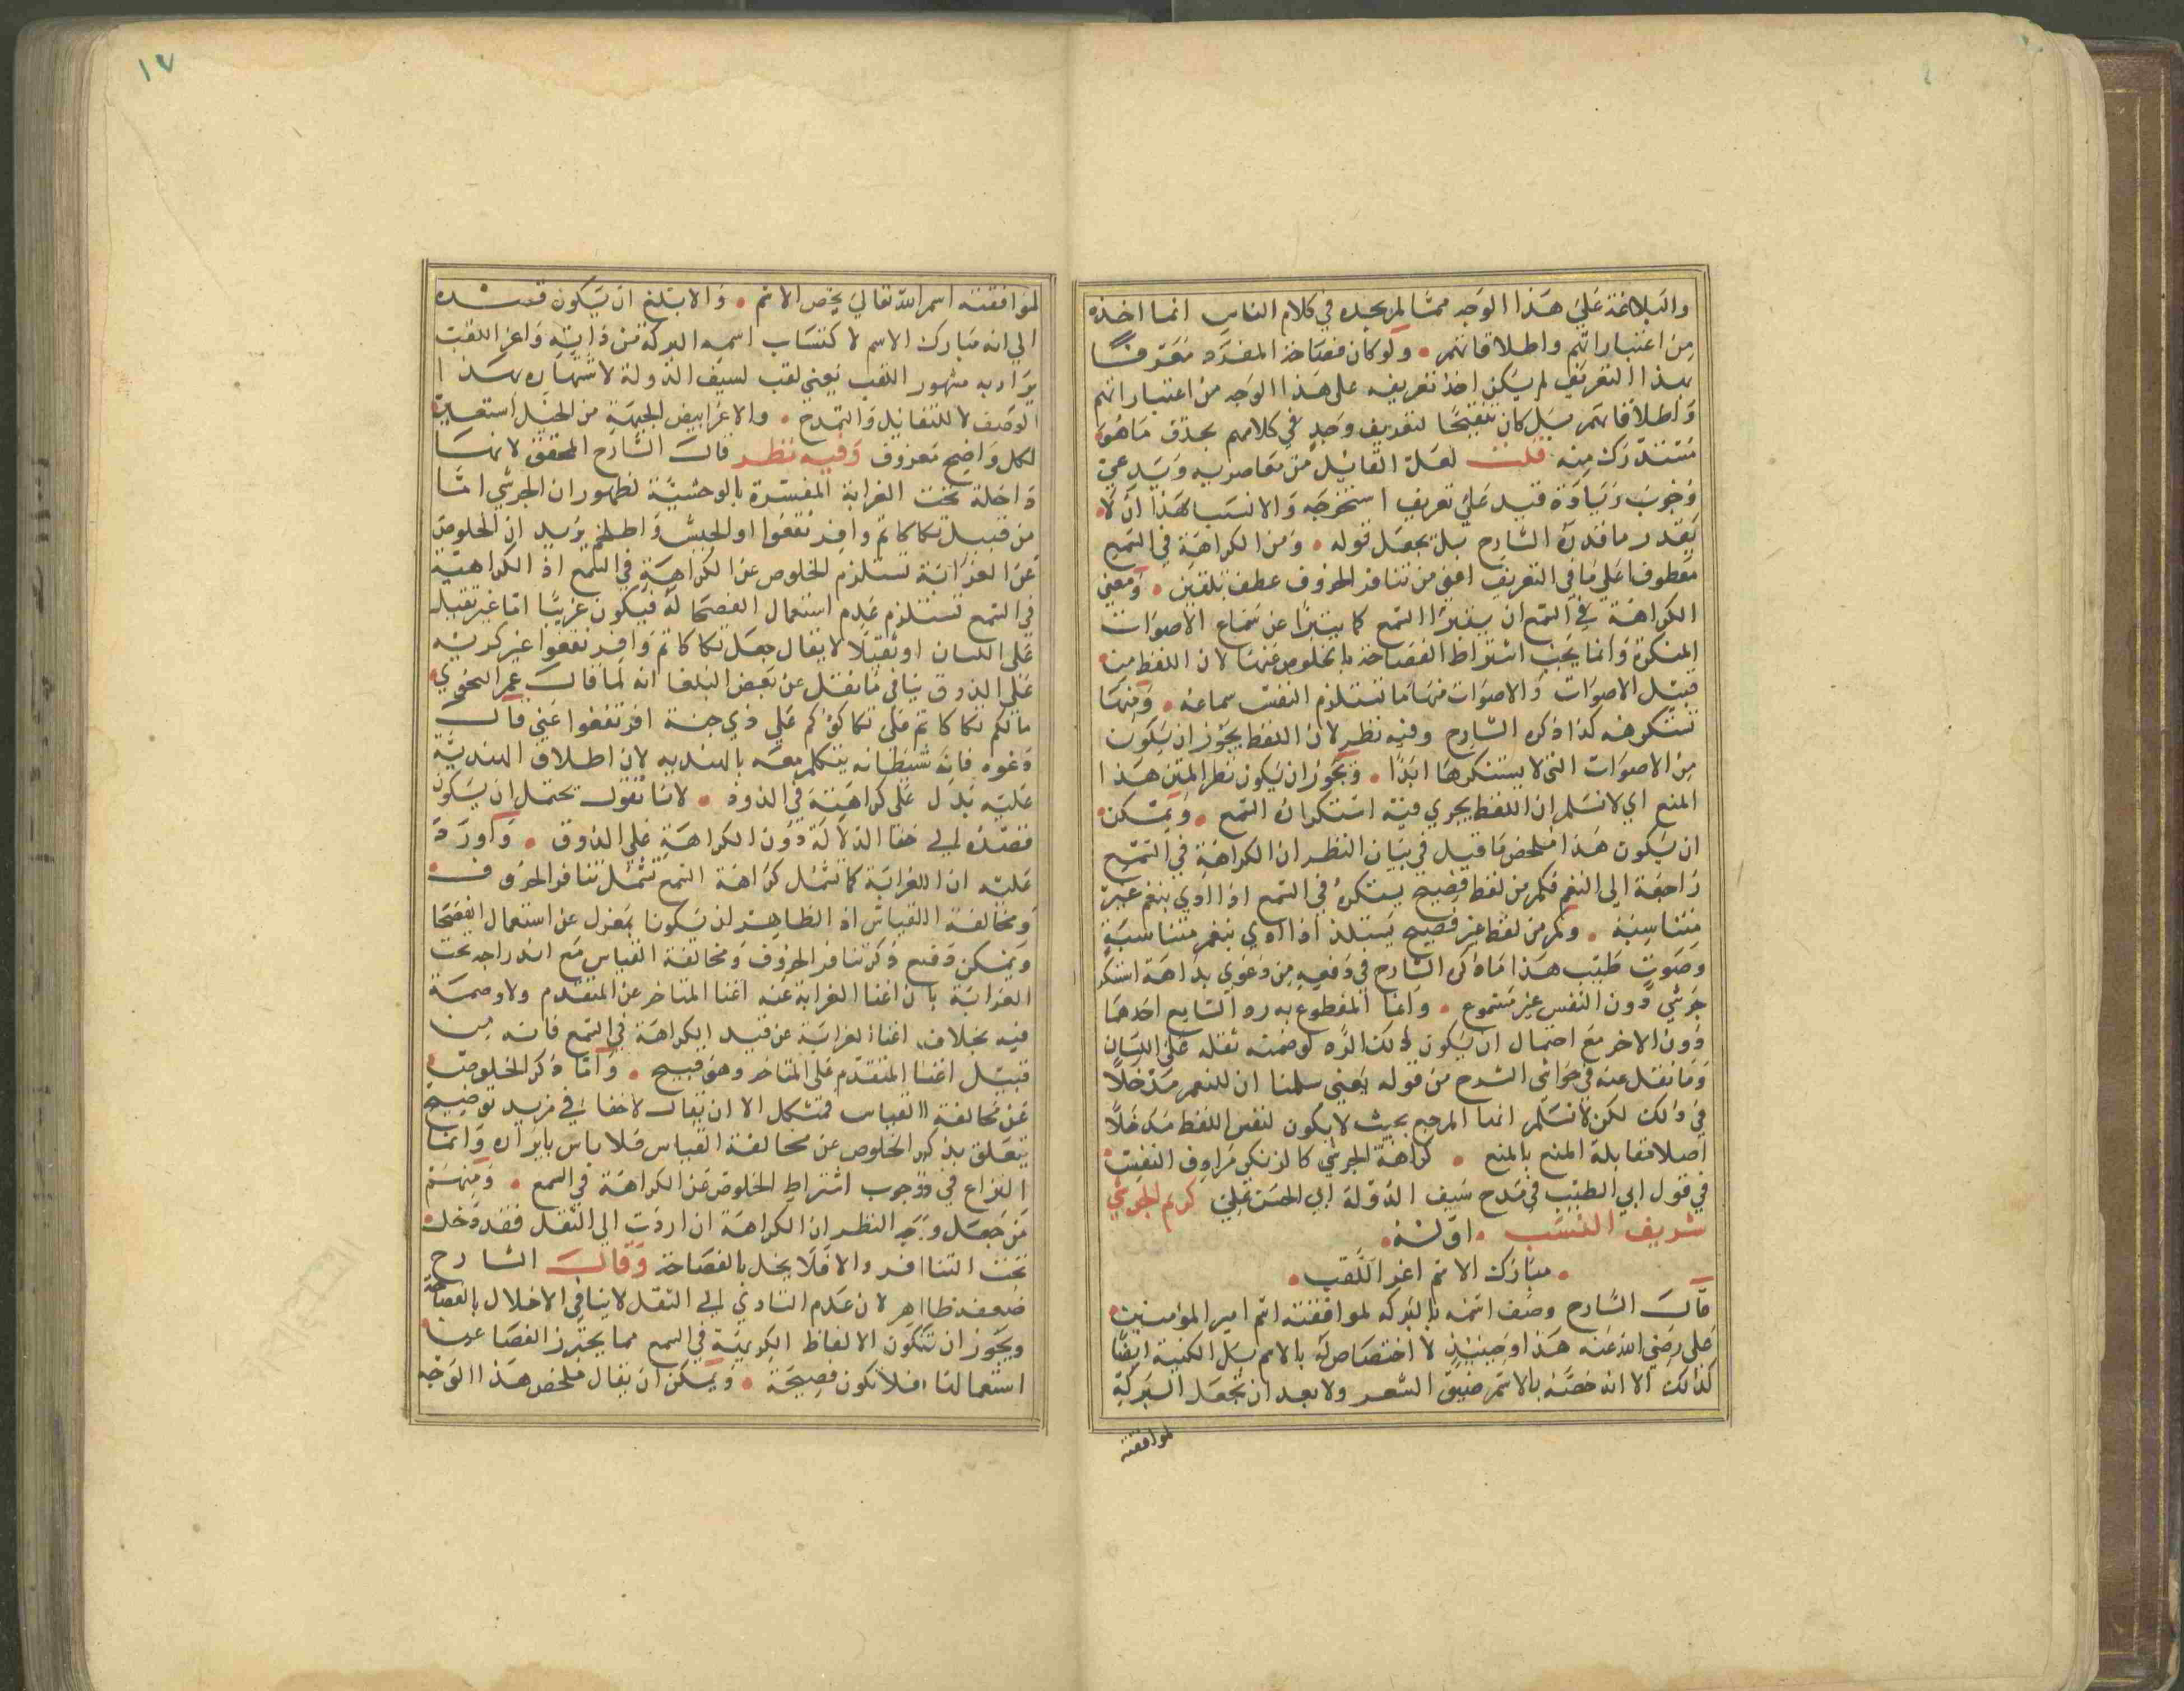 والبلاغة على هذا الوجه مما لم يجده في كلام الناس انما اخذه
من اعتباراتهم واطلاقاتهم • ولو كان فصاحة المفرد معرفا
بهذا التعريف لم يكن اخذ تعريفه على هذا الوجه من اعتباراتهم
واطلاقاتهم بل كان تنقيحا لتعريف وجد في كلامهم بحذف ما هو
مستدرك منه قلت لعل القائل من معاصريه ويدعي
وجوب زيادة قيد على تعريف استخرجه والانسب لهذا ان لا
يقدر ما قدره الشارح بل يجعل قوله • ومن الكراهة في السمع
معطوفا على ما في التعريف اعني من تنافر الحروف عطف تلقين • ومعنى
الكراهة في السمع ان يتبرا السمع كما يتبرا عن سماع الاصوات
المنكرة وانما يجب اشتراط الفصاحة بالخلوص عنها لان اللفظ من
قبيل الاصوات والاصوات منها ما تستلذ النفس سماعه • ومنها
تستكرهه كذا ذكره الشارح وفيه نظر لان اللفظ يجوز ان يكون
من الاصوات التي لا يستنكرها ابدا • ويجوز ان يكون نظر المتن هذا
المنع اي لا نسلم ان اللفظ يجري فيه استكراه السمع • ويمكن
ان يكون هذا ملخص ما قيل في بيان النظر ان الكراهة في السمع
راجعة الى النغم فكم من لفظ فصيح يستكره في السمع اذا ادي بنغم غير
متناسبة • وكم من لفظ غير فصيح يستلذ اذا ادي بنغم متناسبة
وصوت طيب هذا ما ذكره الشارح في دفعه من دعوى بداهة استكراه
جرشى دون النفس غير مسموع • وانما المقطوع به رد الشايع احدهما
دون الاخر مع احتمال ان يكون ذلك الرد لوصمته ثقله على اللسان
وما نقل عنه في حواشي الشرح من قوله يعني سلمنا ان للنغم مدخلا
في ذلك لكن لا نسلم انها المرجع بحيث لا يكون لنفس اللفظ مدخلا
اصلا مقابلة المنع بالمنع • كراهة الجرشى كالزنكي مرادف النفس
في قول ابي الطيب في مدح سيف الدولة ابي الحسن علي كريم الجرشى
شريف النسب • اوله •
• مبارك الاسم اغر اللقب •
قال الشارح وصف اسمه بالبركه لموافقته اسم امير المؤمنين
على رضي الله عنه هذا وحينئذ لا اختصاص له بالاسم بل الكنية ايضا
كذلك الا انه خصه بالاسم ضيق الشعر ولا يبعد ان تجعل البركة
لموافقته
١٧
لموافقته اسم الله تعالى يخص الاسم • والابلغ ان يكون قصده
الى انه مبارك الاسم لاكتساب اسمه البركة من ذاته واغر اللقب
يراد به مشهور اللقب يعني لقب لسيف الدولة لاشتهاره بهذا
الوصف لا للتفائل والتمدح • والاغر ابيض الجبهة من الخيل استعير
لكل واضح معروف وفيه نظر قال الشارح المحقق لانها
داخلة تحت الغرابة المفسرة بالوحشية لظهور ان الجرشى اما
من قبيل تكاكاتم وافرنقعوا او الجحيش واطلخم يريد ان الخلوص
عن الغرابة تستلزم الخلوص عن الكراهية في السمع اذ الكراهية
في السمع تستلزم عدم استعمال الفصحا له فيكون غريبا اما غير ثقيل
على اللسان او ثقيلا لا يقال جعل تكاكاتم وافرنقعوا غير كريه
على الذوق ينافي ما نقل عن بعض البلغا انه لما قال عمر النحوي
ما لكم تكاكاتم على تكاكؤكم على ذي جنة افرنقعوا عني قال
دعوه فان شيطانه يتكلم معه بالهنديه لان اطلاق الهندية
عليه يدل على كراهته في الذوق • لانا نقول يحتمل ان يكون
قصده الى خفا الدلالة دون الكراهة على الذوق • واورد
عليه ان الغرابة كما تشمل كراهة السمع تشمل تنافر الحروف
ومخالفة القياس اذ الظاهر ان يكونا بمعزل عن استعمال الفصحا
ويمكن دفع ذكر تنافر الحروف ومخالفة القياس مع اندراجه تحت
الغرابة بان اغنا الغرابة عنه اغنا المتاخر عن المتقدم ولا وصمة
فيه بخلاف اغنا الغرابة عن قيد الكراهة في السمع فانه من
قبيل اغنا المتقدم على المتاخر وهو قبيح • واما ذكر الخلوص
عن مخالفة القياس فمشكل الا ان يقال لا خفا في مزيد توضيح
يتعلق بذكر الخلوص عن مخالفة القياس فلا باس بايراده وانما
النزاع في وجوب اشتراط الخلوص عن الكراهة في السمع • ومنهم
من جعل وجه النظر ان الكراهة ان اردت الى الثقل فقد دخلت
تحت التنافر والا فلا يخل بالفصاحة وقال الشارح
ضعفه ظاهر لان عدم التادي الى الثقل لا ينافي الاخلال بالفصاحة
ويجوز ان تكون الالفاظ الكريهة في السمع مما يحترز الفصحا عن
استعمالها فلا تكون فصيحة • ويمكن ان يقال ملخص هذا الوجه